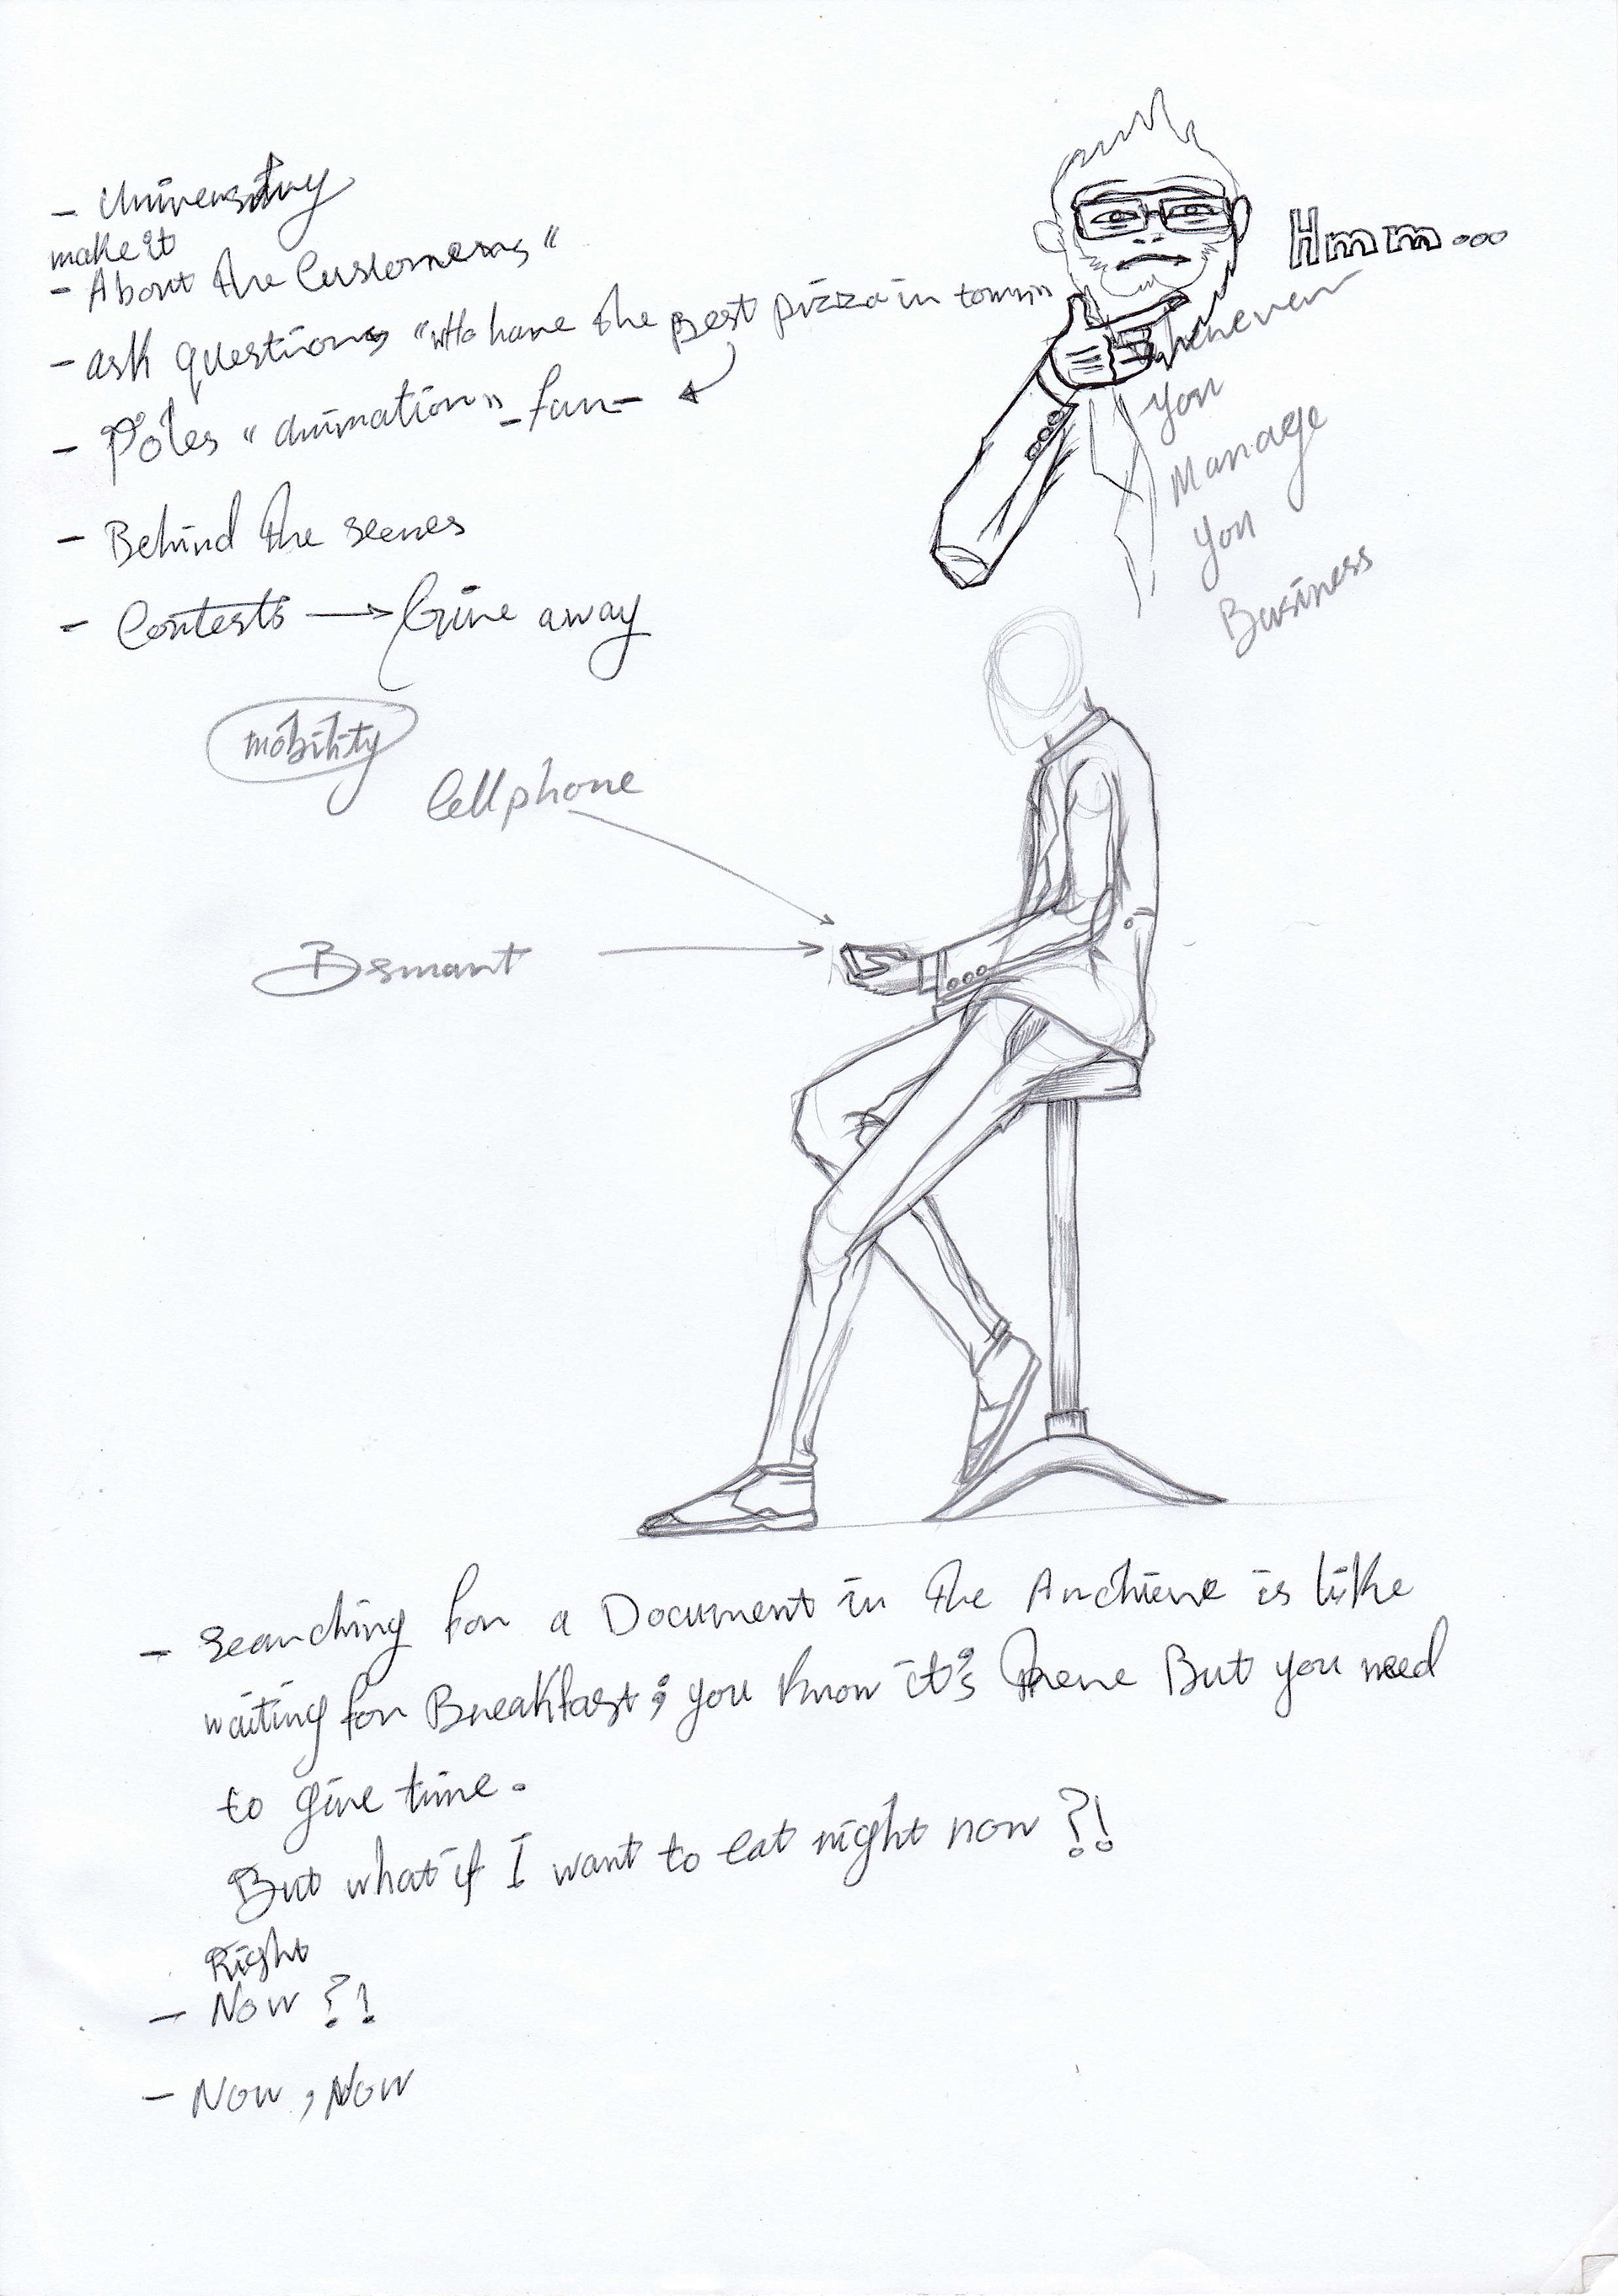 - University
make it
- About the Customers "
- ask questions "who have the Best pizza in town"
- Poles "animation" - fun -
- Behind the scenes
- Contests → Give away
Hmm...
whenever
you
Manage
you
Business
mobility
Cellphone
Bsmart
- Searching for a Document in the Archieve is like
waiting for Breakfast; you know it's there But you need
to give time.
But what if I want to eat right now ?!
Right
- Now ?!
- Now, Now